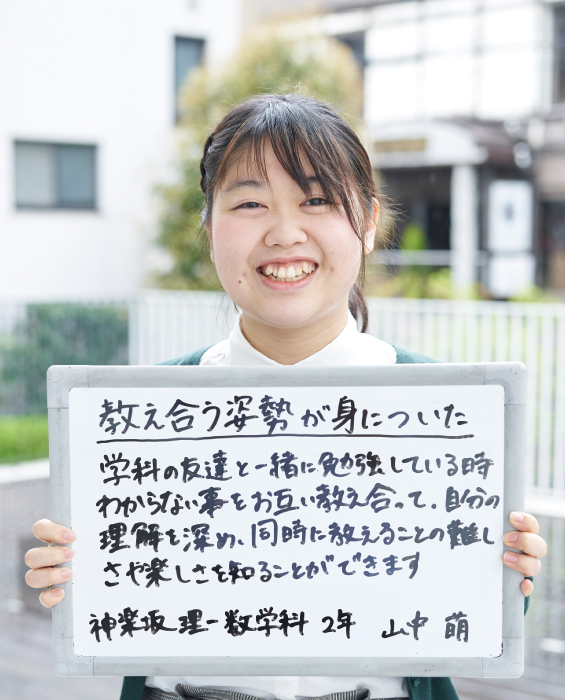 教え合う姿勢が身についた
学科の友達と一緒に勉強している時
わからない事をお互い教え合って、自分の
理解を深め、同時に教えることの難し
さや楽しさを知ることができます
神楽坂 理一数学科 2年 山中 萌